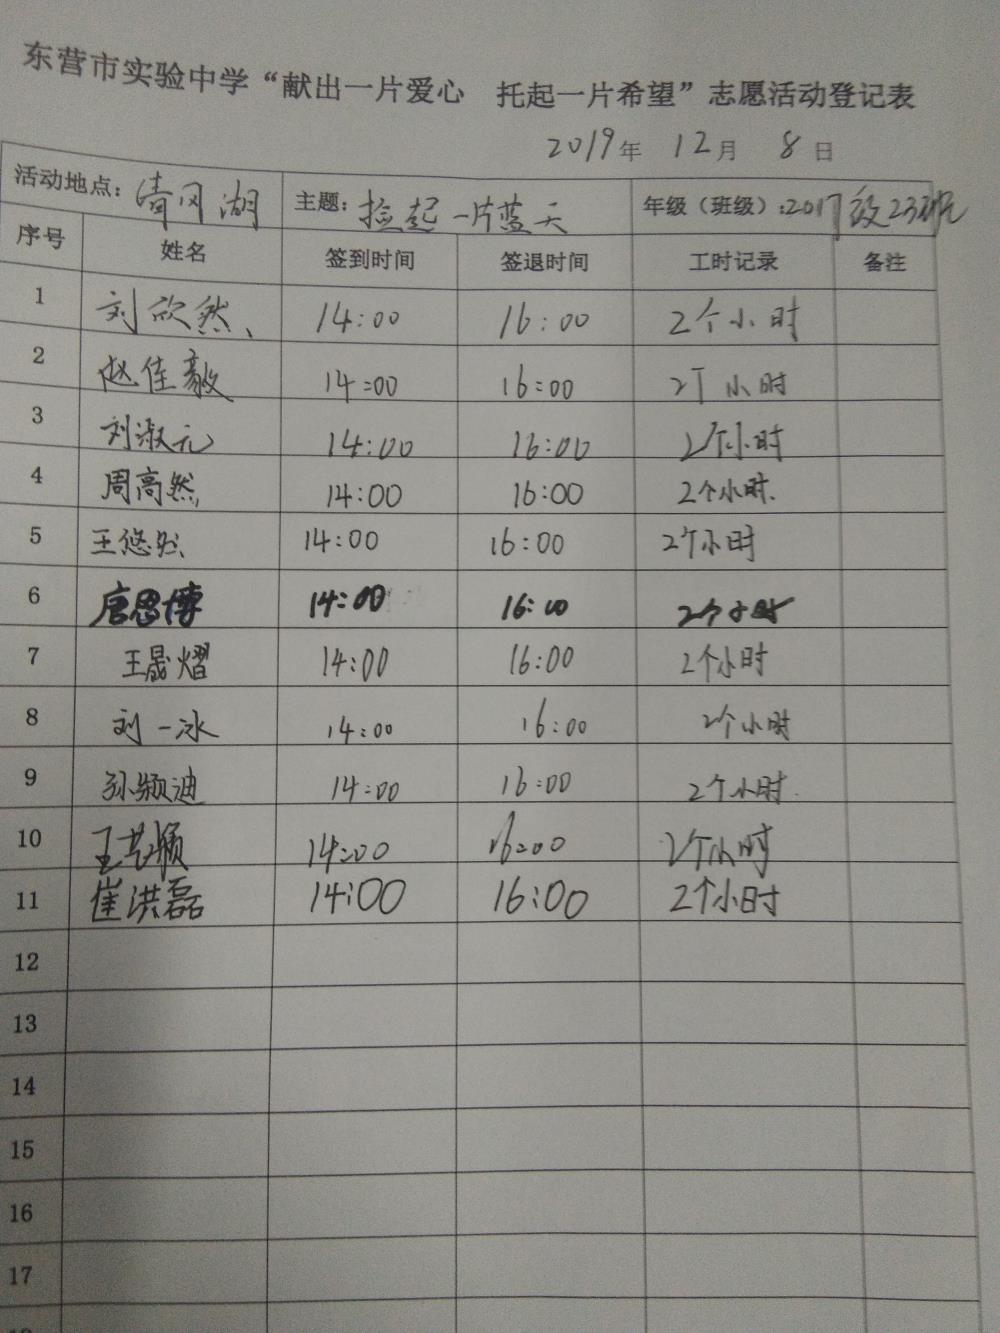 东营市实验中学“献出一片爱心 托起一片希望”志愿活动登记表
2019年 12月 8日
活动地点：清风湖 主题：捡起一片蓝天 年级（班级）：2017级23班
序号 姓名 签到时间 签退时间 工时记录 备注
1 刘欣然 14:00 16:00 2个小时
2 赵佳毅 14:00 16:00 2个小时
3 刘淑元 14:00 16:00 2个小时
4 周高然 14:00 16:00 2个小时
5 王悠然 14:00 16:00 2个小时
6 唐思博 14:00 16:00 2个小时
7 王晟熠 14:00 16:00 2个小时
8 刘一冰 14:00 16:00 2个小时
9 孙颖迪 14:00 16:00 2个小时
10 王艺颖 14:00 16:00 2个小时
11 崔洪磊 14:00 16:00 2个小时
12
13
14
15
16
17